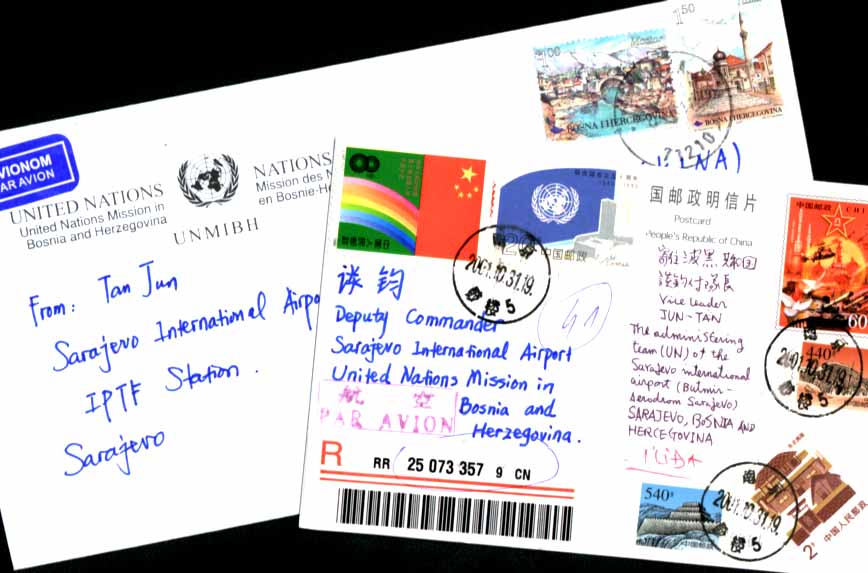 AVIONOM
PAR AVION
UNITED NATIONS
United Nations Mission in
Bosnia and Herzegovina
NATIONS
Mission des
en Bosnie-He
UNMIBH
From: Tan Jun
Sarajevo International Airpo
IPTF Station.
Sarajevo
1.00
BOSNA I HERCEGOVINA
1.50
BOSNA I HERCEGOVINA
中国邮政
2001.10.31.19.
谈 钧
Deputy Commander
Sarajevo International Airport
United Nations Mission in
Bosnia and
Herzegovina.
航 空
PAR AVION
R
RR 25 073 357 9 CN
41
国邮政明信片
Postcard
People's Republic of China
Vice leader
JUN-TAN
The administering
team (UN) of the
Sarajevo international
airport (Butmir-
Aerodrom Sarajevo)
SARAJEVO, BOSNIA AND
HERCEGOVINA
ILIDA
中国邮政 CHI
60
440
2001.10.31.19.
540
中国邮政
2001.10.31.19.
2
中国人民邮政